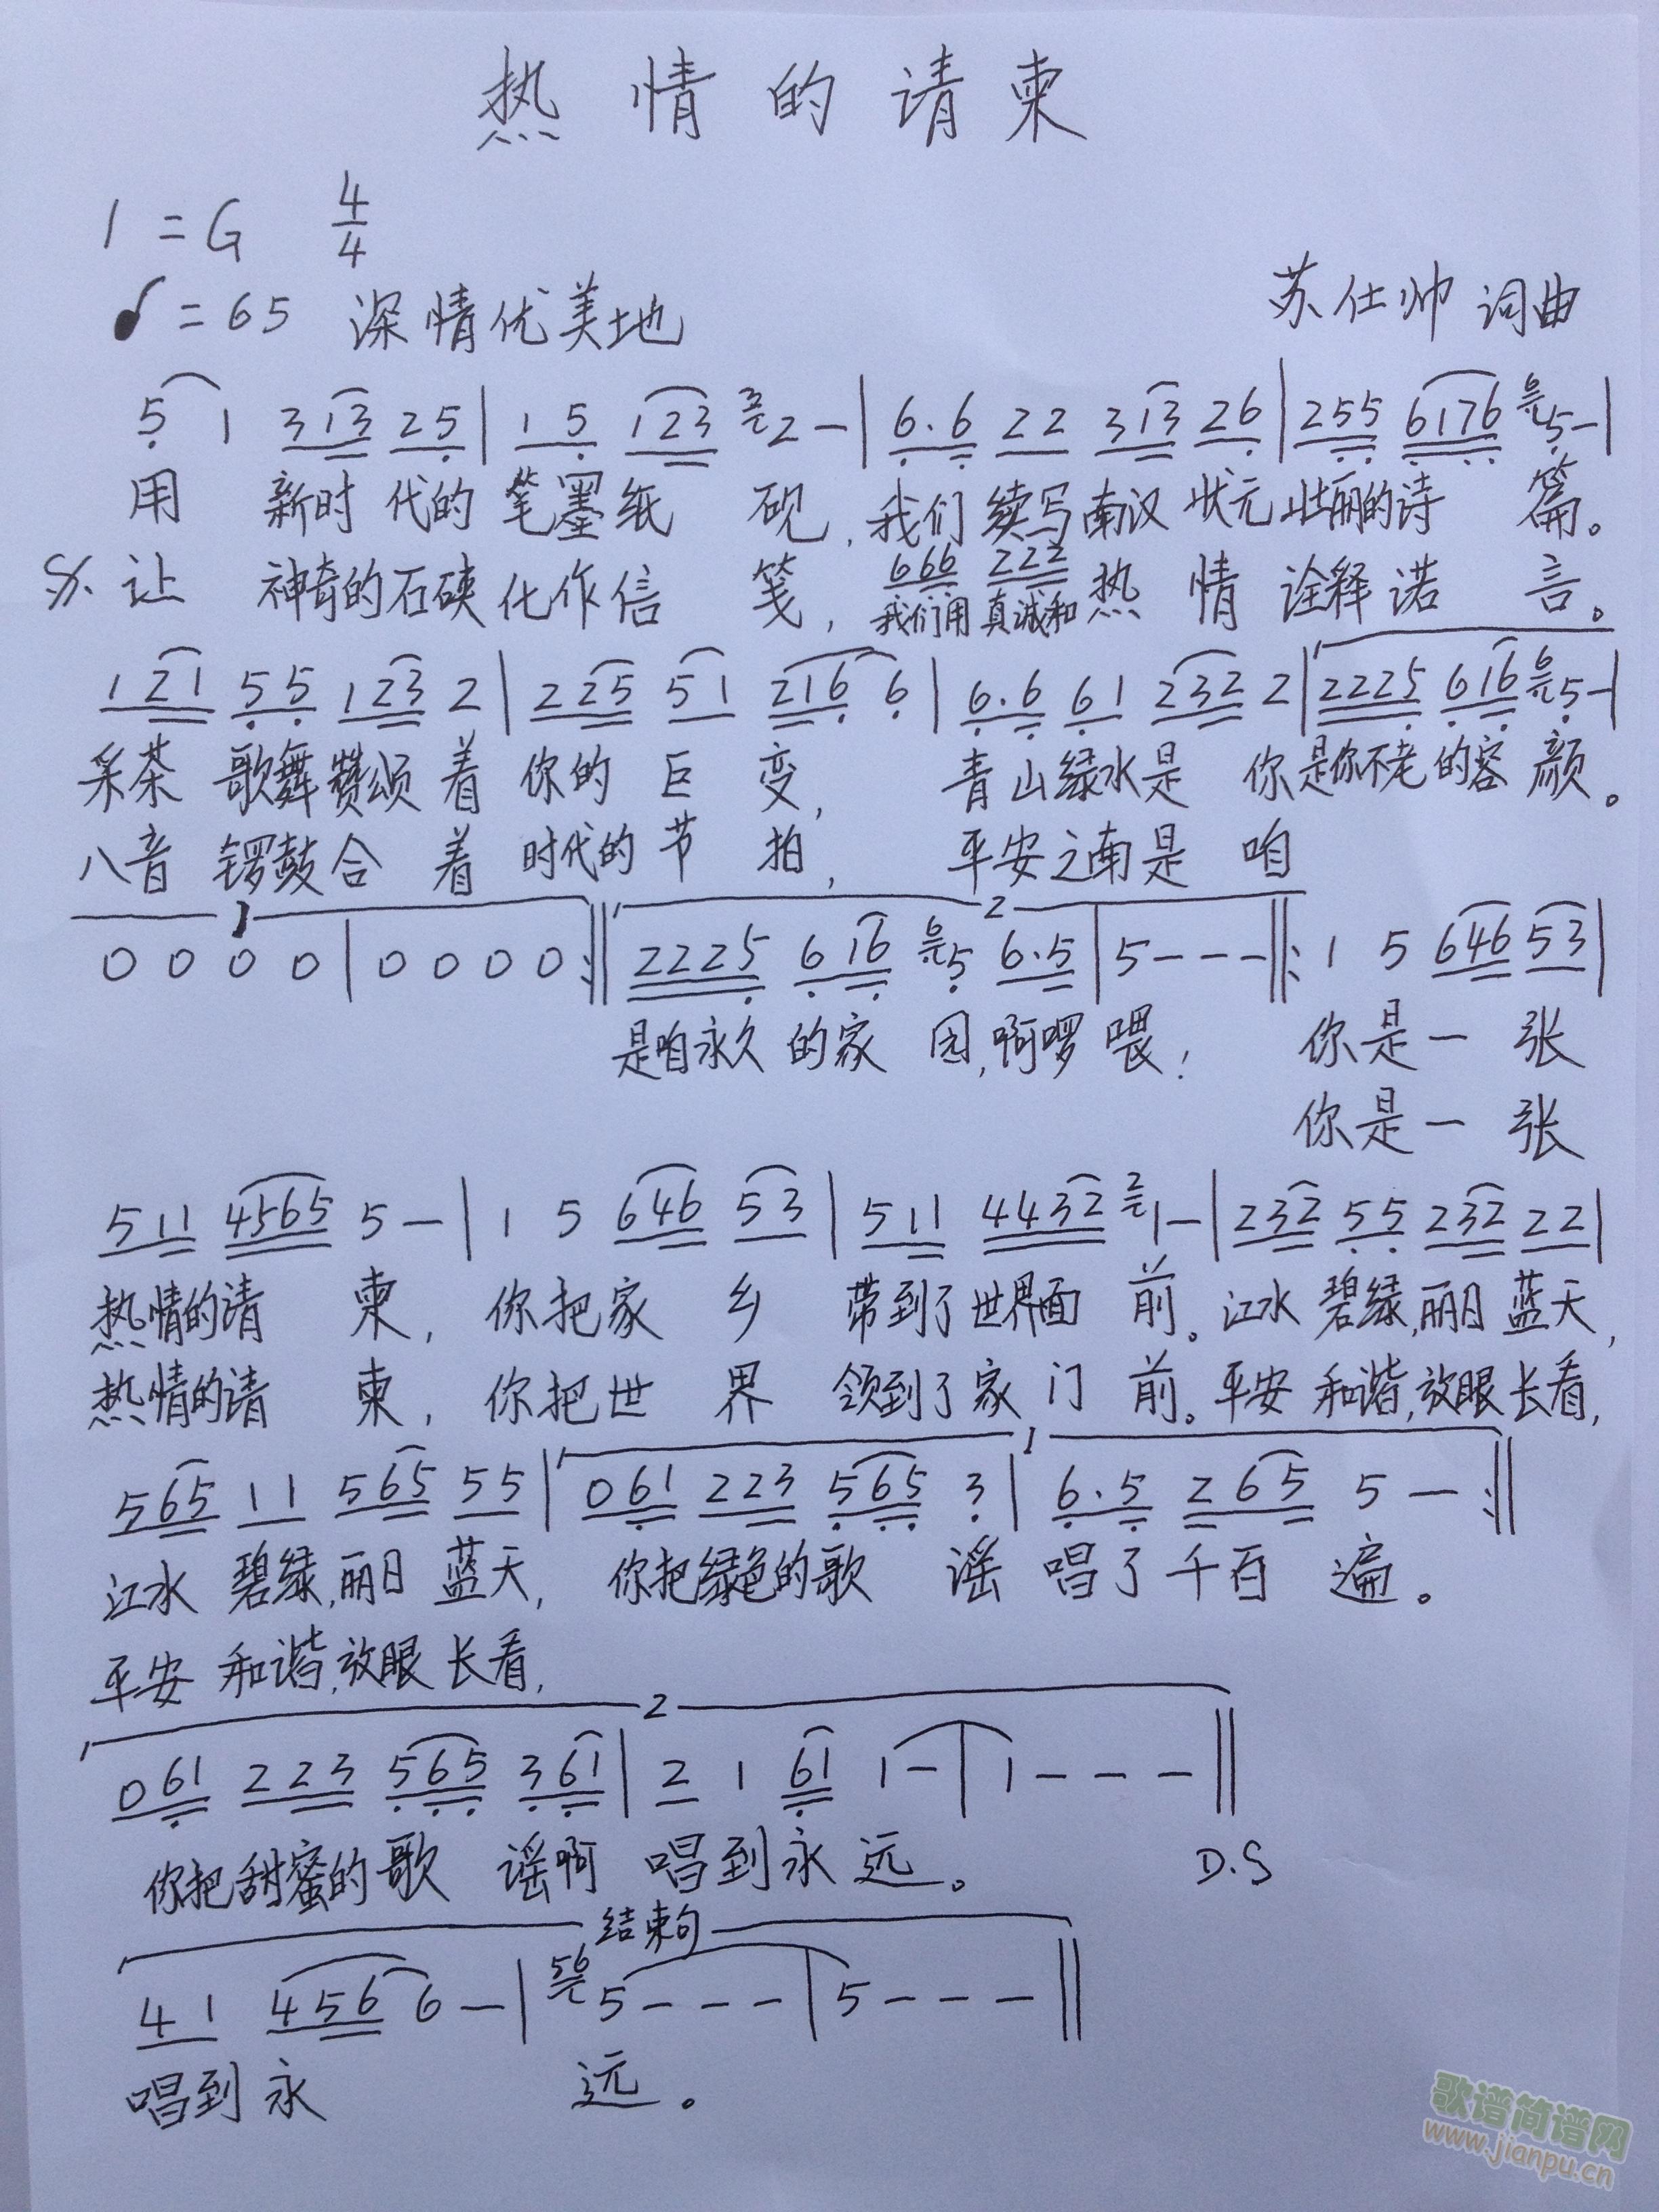 热情的请柬
1=G 4/4
♩=65 深情优美地 苏仕帅 词曲
5 1 313 25 | 1 5 123 3 2 - | 6.6 22 313 26 | 255 6176 6 5 - |
用 新时代的笔墨纸砚,我们续写南汉状元壮丽的诗篇。
666 222
让 神奇的石硖化作信笺,我们用真诚和热情诠释诺言。
121 55 123 2 | 225 51 216 6 | 6.6 61 232 2 | 2225 616 6 5 - |
采茶歌舞赞颂着你的巨变, 青山绿水是你是你不老的容颜。
八音锣鼓合着时代的节拍, 平安之南是咱
1 2
0 0 0 0 | 0 0 0 0 :‖ 2225 616 6 5 6.5 | 5 - - - ‖: 1 5 646 53 |
是咱永久的家园,啊啰喂! 你是一张
你是一张
511 4565 5 - | 1 5 646 53 | 511 4432 2 1 - | 232 55 232 22 |
热情的请柬,你把家乡带到了世界面前。江水碧绿,丽日蓝天,
热情的请柬,你把世界领到了家门前。平安和谐,放眼长看,
1
565 11 565 55 | 061 223 565 3 | 6.5 265 5 - :‖
江水碧绿,丽日蓝天, 你把绿色的歌谣唱了千百遍。
平安和谐,放眼长看,
2
061 223 565 361 | 2 1 61 1 - | 1 - - - ‖
你把甜蜜的歌谣啊唱到永远。 D.S
结束句
41 456 6 - | 56 5 - - - | 5 - - - ‖
唱到永远。
歌谱简谱网
www.jianpu.cn